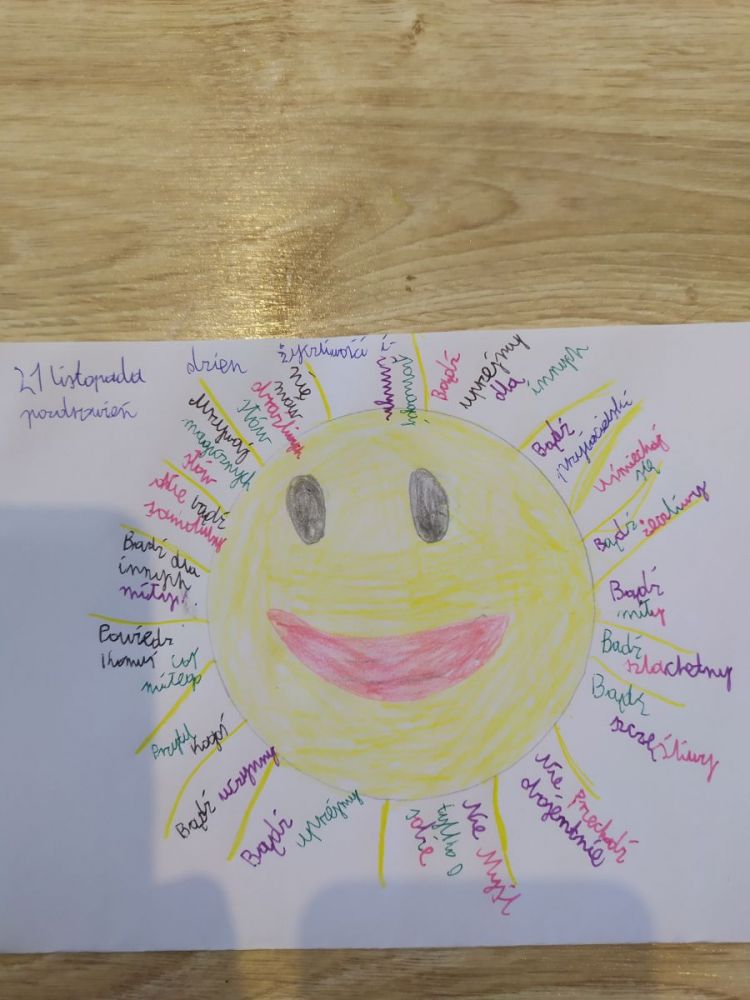 21 listopada dzień życzliwości i
pozdrowień
Bądź
uprzejmy
dla
innych
Bądź
przyjacielski
Uśmiechaj
się
Bądź życzliwy
Bądź
miły
Bądź
szlachetny
Bądź
szczęśliwy
Nie Przechodź
obojętnie
Nie Myśl
tylko o
sobie
Bądź uprzejmy
Bądź uczynny
Przytul kogoś
Powiedz
komuś coś
miłego
Bądź dla
innych
miły!
Nie bądź
samolubny
Używaj
magicznych
słów
nie
mów
słów